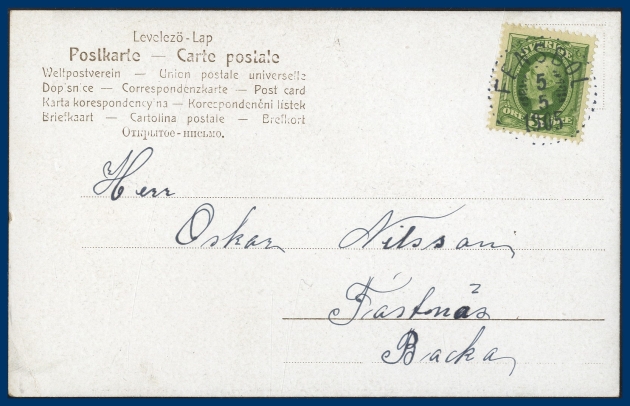 Levelező-Lap
Postkarte — Carte postale
Weltpostverein — Union postale universelle
Dop'sn ce — Correspondenzkarte — Post card
Karta korespondency'na — Korespondenční listek
Briefkaart — Cartolina postale — Brefkort
Открытое-письмо.
SVERIGE
5
5
1905
ÖRE
Herr
Oskar Nilsson
Fästnäs
Backa